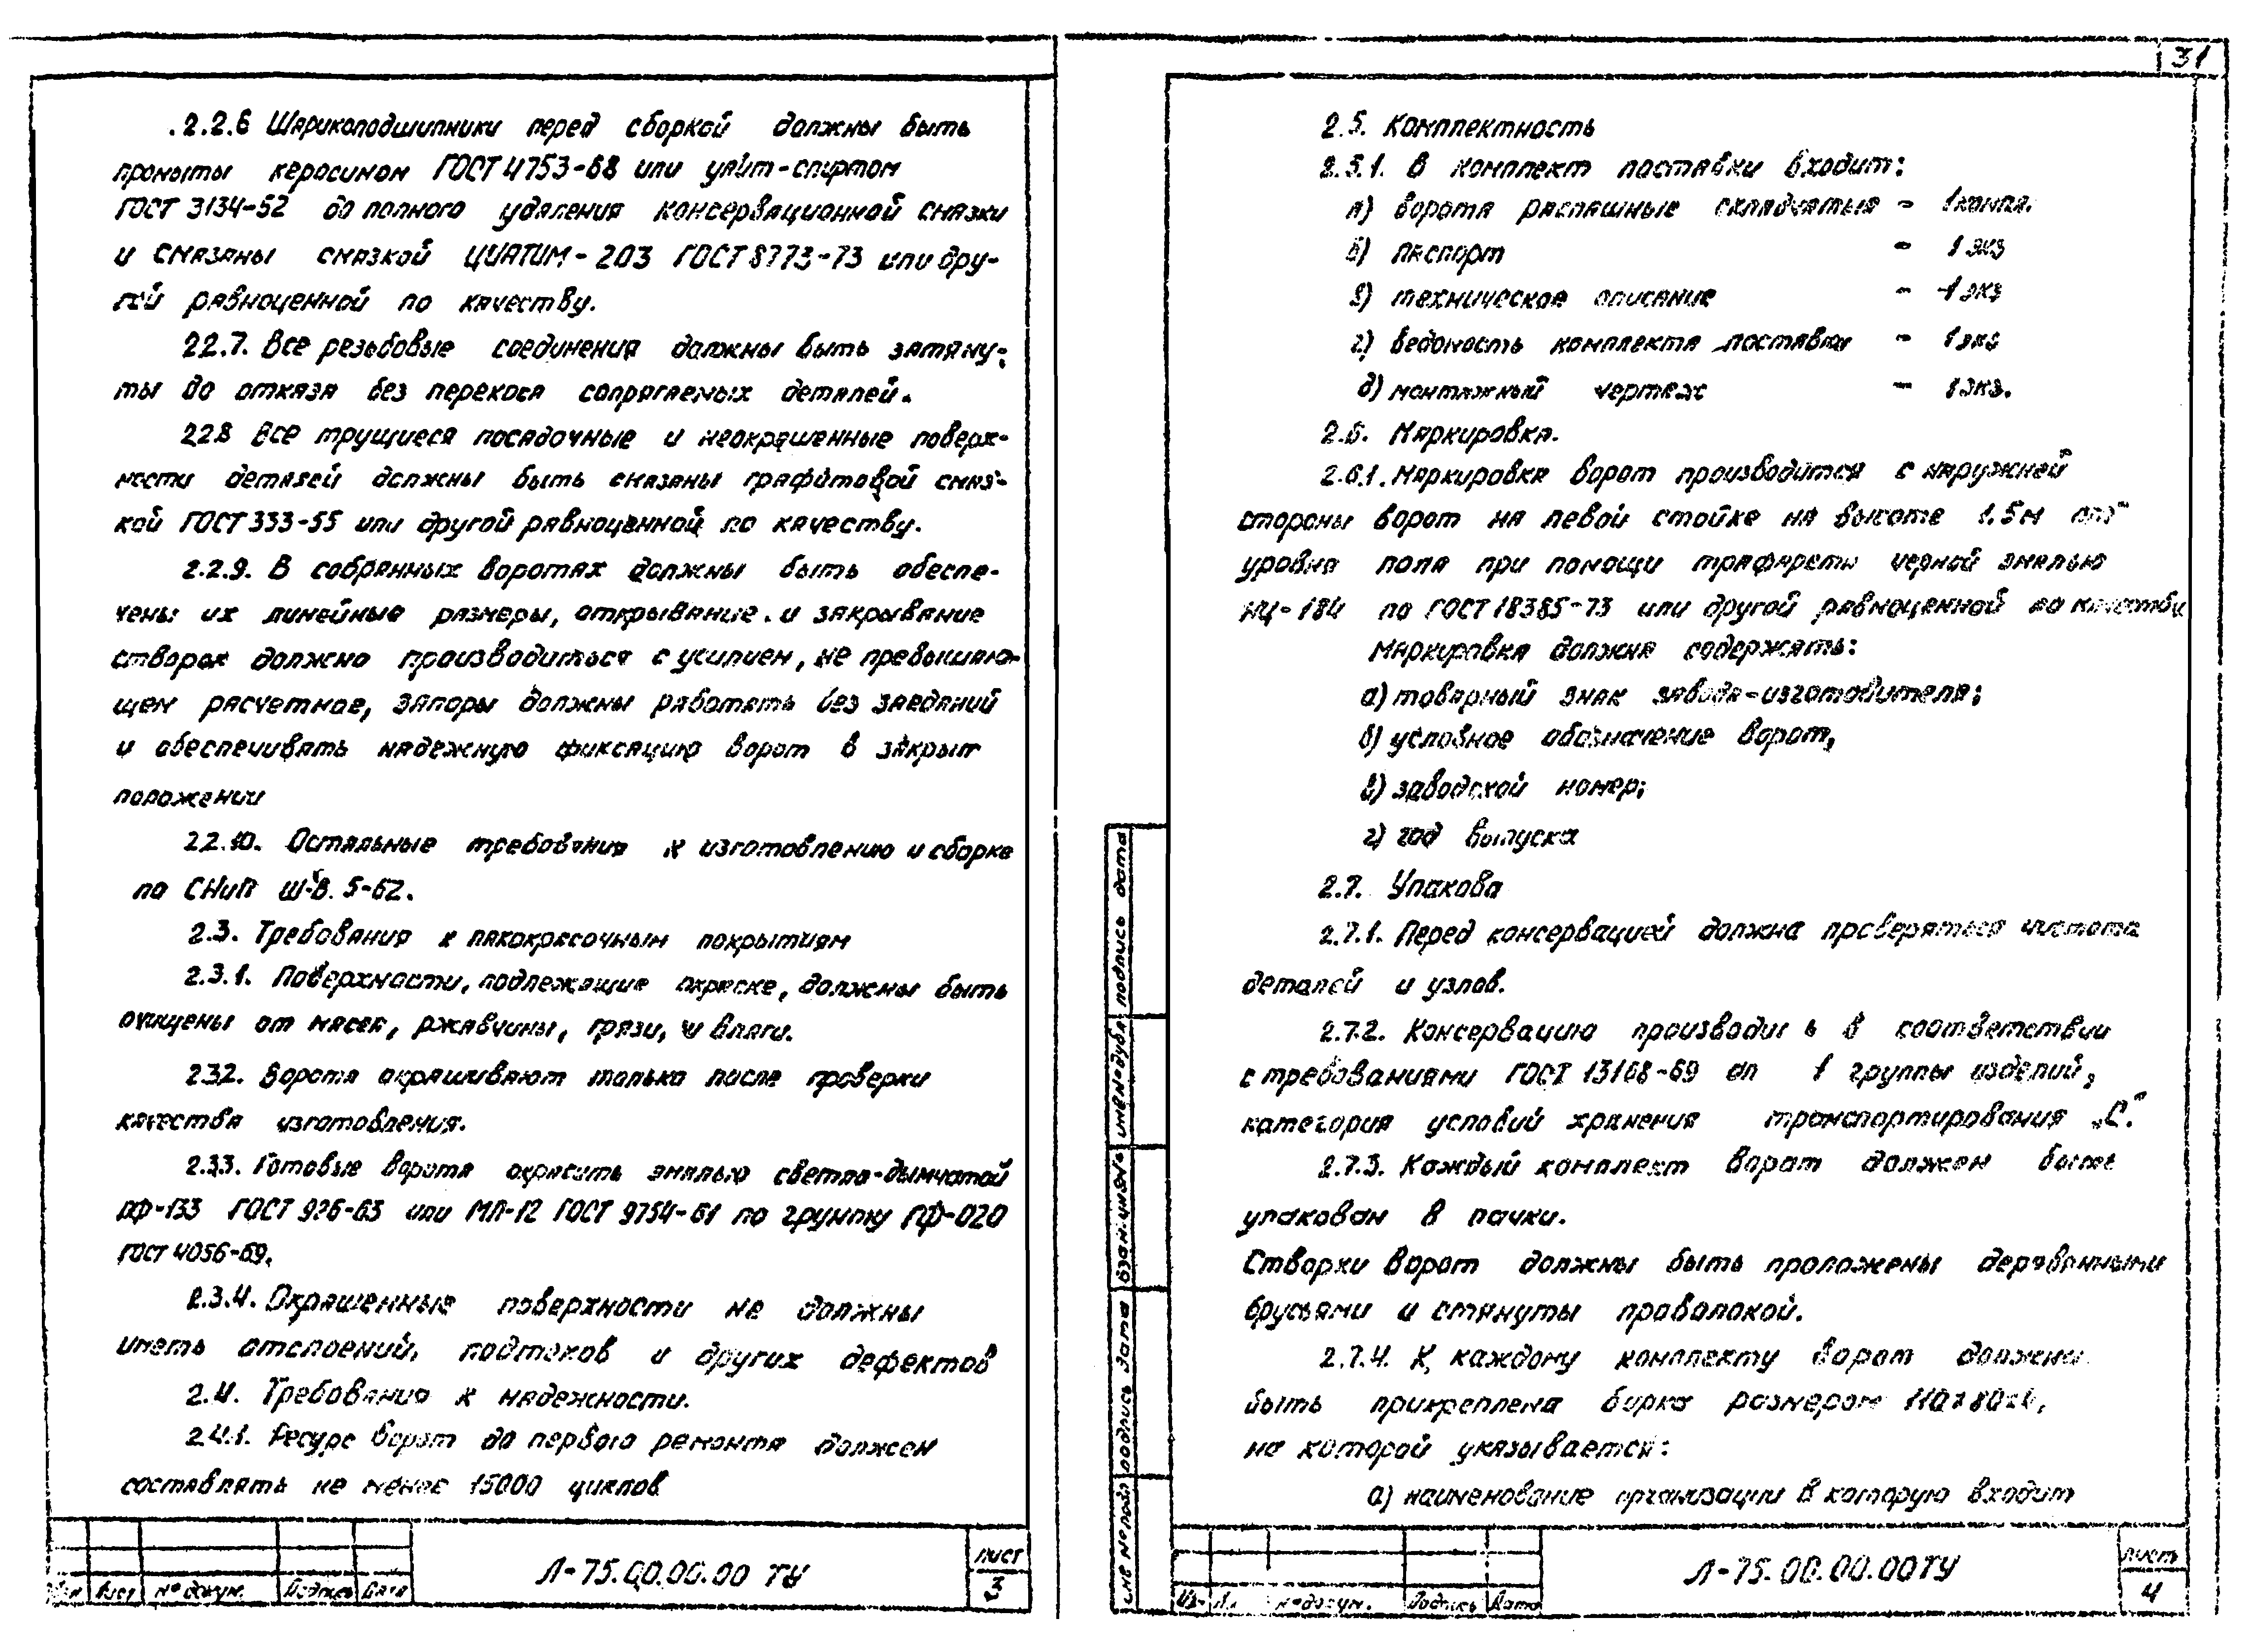 .2.2.6 Шарикоподшипники перед сборкой должны быть
промыты керосином ГОСТ 4753-68 или уайт-спиртом
ГОСТ 3134-52 до полного удаления консервационной смазки
и смазаны смазкой ЦИАТИМ-203 ГОСТ 8773-73 или дру-
гой равноценной по качеству.
22.7. Все резьбовые соединения должны быть затяну-
ты до отказа без перекоса сопрягаемых деталей.
228 Все трущиеся посадочные и неокрашенные поверх-
ности деталей должны быть смазаны графитовой смаз-
кой ГОСТ 333-55 или другой равноценной по качеству.
2.2.9. В собранных воротах должны быть обеспе-
чены их линейные размеры, открывание. и закрывание
створок должно производиться с усилием, не превышаю-
щем расчетное, запоры должны работать без заеданий
и обеспечивать надежную фиксацию ворот в закрыт
положении
22.10. Остальные требования к изготовлению и сборке
по СНиП Ш-В. 5-62.
2.3. Требования к лакокрасочным покрытиям
2.3.1. Поверхности, подлежащие окраске, должны быть
очищены от масел, ржавчины, грязи, и влаги.
232. Ворота окрашивают только после проверки
качества изготовления.
2.33. Готовые ворота окрасить эмалью светло-дымчатой
ПФ-133 ГОСТ 926-63 или МЛ-12 ГОСТ 9754-61 по грунту ПФ-020
ГОСТ 4056-69.
2.3.4. Окрашенные поверхности не должны
иметь отслоений, подтеков и других дефектов
2.4. Требования к надежности.
2.4.1. Ресурс ворот до первого ремонта должен
составлять не менее 15000 циклов
Лист № докум. Подпись Дата
Л-75.00.00.00 ТУ
лист
3
31
2.5. Комплектность
2.5.1. В комплект поставки входит:
а) ворота распашные складчатые - 1компл.
б) паспорт - 1 экз
в) техническое описание - 1 экз
г) ведомость комплекта поставки - 1 экз
д) монтажный чертеж - 1экз.
2.6. Маркировка.
2.6.1. Маркировка ворот производится с наружней
стороны ворот на левой стойке на высоте 1.5м от
уровня пола при помощи трафарета черной эмалью
НЦ-184 по ГОСТ 18385-73 или другой равноценной по качеству
Маркировка должна содержать:
а) товарный знак завода-изготовителя;
б) условное обозначение ворот,
в) заводской номер;
г) год выпуска
2.7. Упакова
2.7.1. Перед консервацией должна проверяться чистота
деталей и узлов.
2.7.2. Консервацию производить в соответствии
с требованиями ГОСТ 13168-69 1 группы изделий,
категория условий хранения транспортирования „С".
2.7.3. Каждый комплект ворот должен быть
упакован в пачки.
Створки ворот должны быть проложены деревянными
брусьями и стянуты проволокой.
2.7.4. К каждому комплекту ворот должна
быть прикреплена бирка размером
на которой указывается:
а) наименование организации в которую входит
инв № подл подпись дата взам. инв № инв № дубл подпись дата
№ докум. Подпись Дата
Л-75.00.00.00ТУ
лист
4